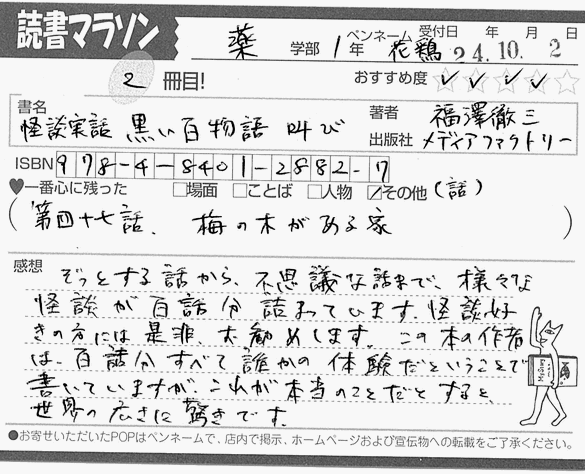 読書マラソン
薬 学部 1年 ペンネーム 花鶏 受付日 24.10.2
2 冊目! おすすめ度 ☆☆☆☆☆
書名 怪談実話 黒い百物語 叫び
著者 福澤徹三
出版社 メディアファクトリー
ISBN 978-4-8401-2882-7
♥一番心に残った □場面 □ことば □人物 ☑その他(話)
(第四十七話、 梅の木がある家)
感想 ぞっとする話から、不思議な話まで、様々な
怪談が百話分詰まっています。怪談好
きの方には是非、お勧めします。この本の作者
は、百話分すべて誰かの体験だということで
書いていますが、これが本当のことだとすると、
世界の広さに驚きです。
●お寄せいただいたPOPはペンネームで、店内で掲示、ホームページおよび宣伝物への転載をご了承ください。